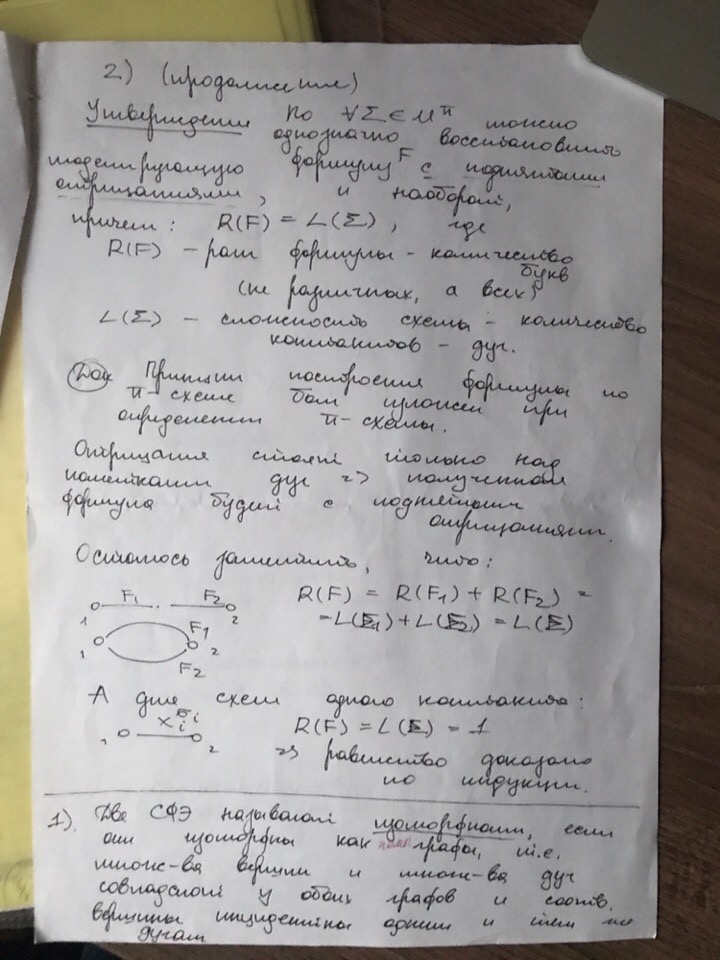 2) (продолжение)
Утверждение По ∀Σ ∈ U^π можно
однозначно восстановить
моделирующую формулу F с поднятыми
отрицаниями, и наоборот,
причем: R(F) = L(Σ), где
R(F) – ранг формулы – количество
букв
(не различных, а всех)
L(Σ) – сложность схемы – количество
контактов – дуг.
Док Принцип построения формулы по
π-схеме был изложен при
определении π-схемы.
Отрицания стоят только над
пометками дуг => полученная
формула будет с поднятыми
отрицаниями.
Осталось заметить, что:
1 F1 F2 2 R(F) = R(F1) + R(F2) =
1 F1 2 F2 = L(Σ1) + L(Σ2) = L(Σ)
А для схем одного контакта:
1 x_i^σi 2 R(F) = L(Σ) = 1
=> равенство доказано
по индукции.
1). Две СФЭ называют изоморфными, если
они изоморфны как графы, т.е.
множ-ва вершин и множ-ва дуг
совпадают у обоих графов и соотв.
вершины инцидентны одним и тем же
дугам